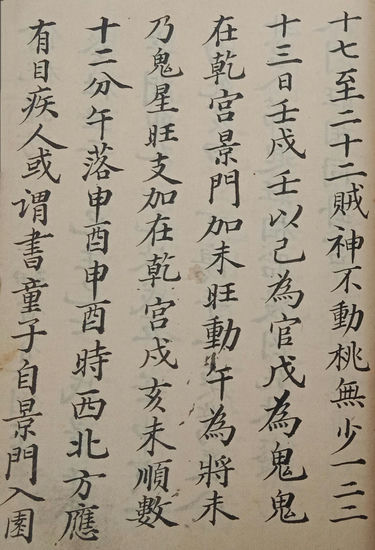 十七至二十二賊神不動桃無少一二二
十三日壬戌壬以己為官戊為鬼鬼
在乾宮景門加未旺動午為將未
乃鬼星旺支加在乾宮戌亥未順數
十二分午落申酉申酉時西北方應
有目疾人或谓書童子自景門入園